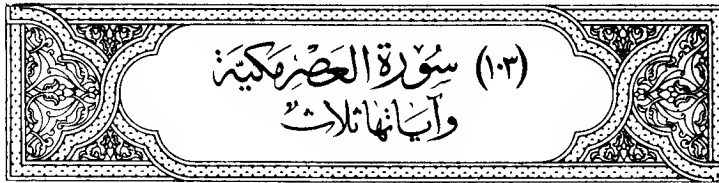 (١٠٣) سُورَة العَصْرِ مَكيَّة
وَآيَاتُهَا ثَلَاثٌ